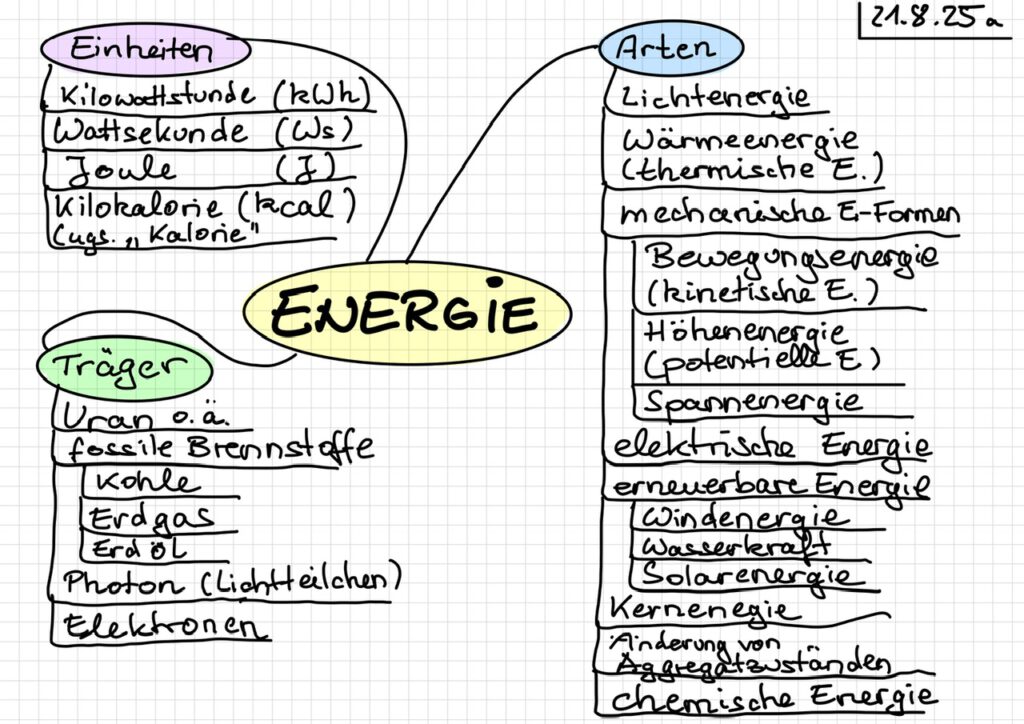 21.8.25a
Einheiten
Kilowattstunde (kWh)
Wattsekunde (Ws)
Joule (J)
Kilokalorie (kcal)
(ugs. „Kalorie"
ENERGIE
Träger
Uran o.ä.
fossile Brennstoffe
Kohle
Erdgas
Erdöl
Photon (Lichtteilchen)
Elektronen
Arten
Lichtenergie
Wärmeenergie
(thermische E.)
mechanische E-Formen
Bewegungsenergie
(kinetische E.)
Höhenenergie
(potentielle E.)
Spannenergie
elektrische Energie
erneuerbare Energie
Windenergie
Wasserkraft
Solarenergie
Kernenegie
Änderung von
Aggregatzuständen
chemische Energie